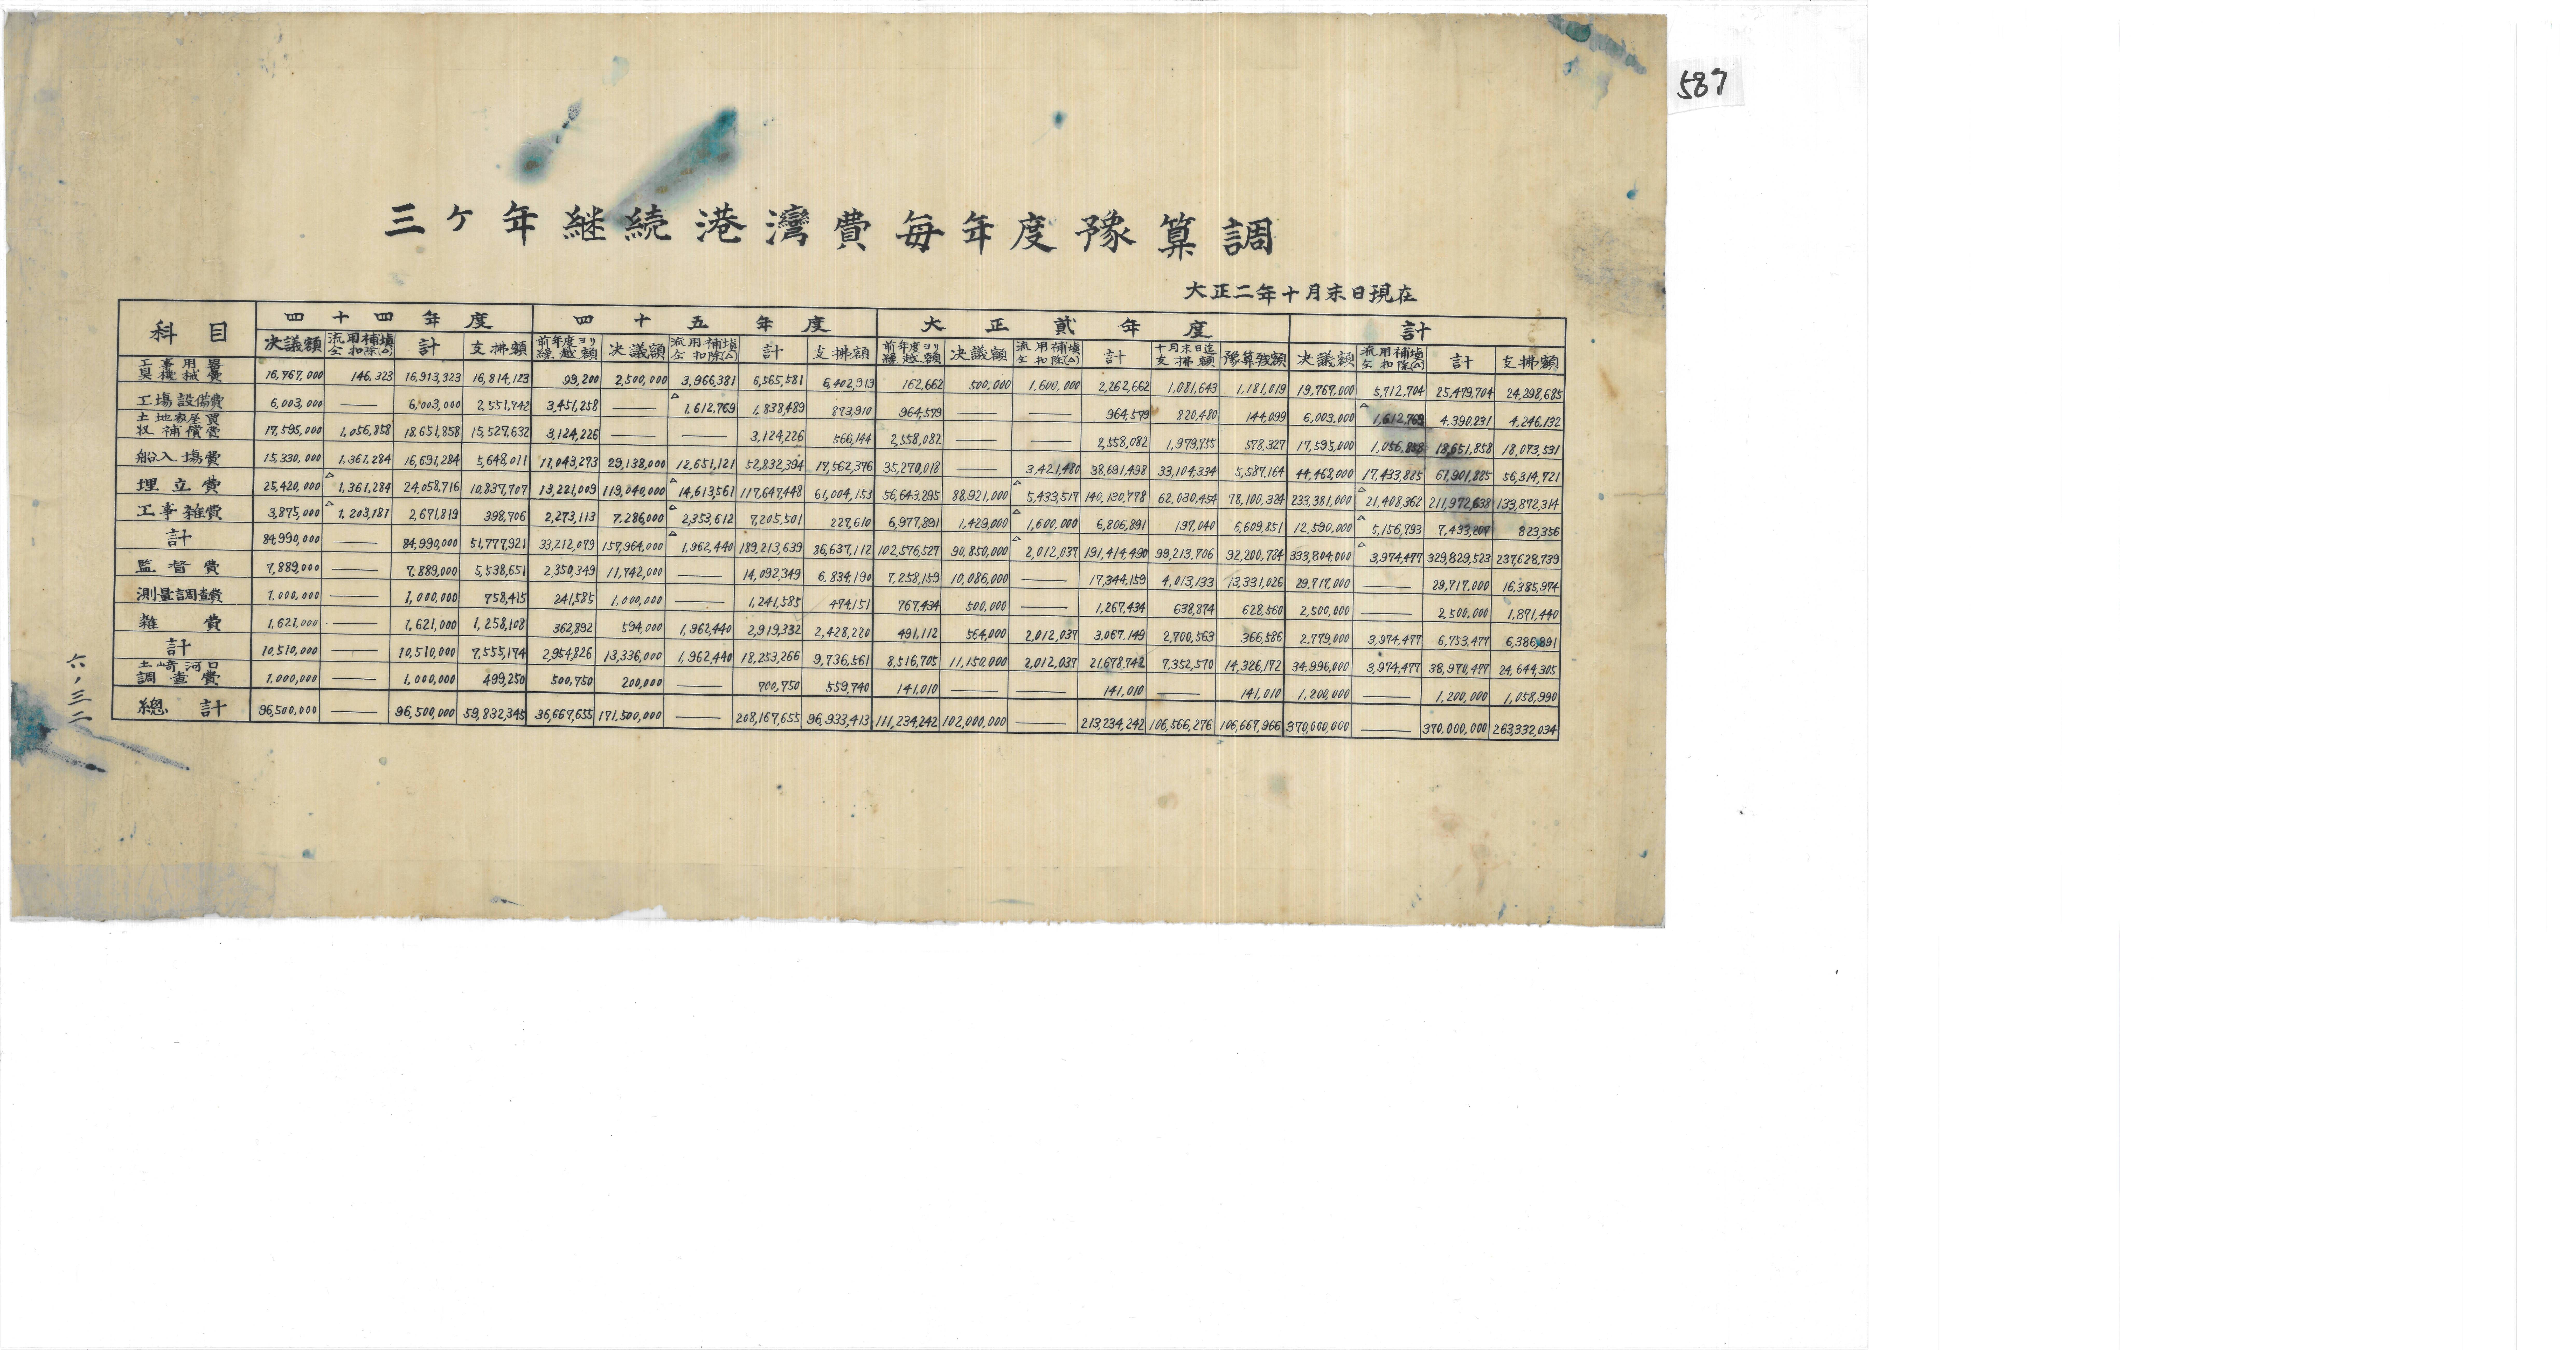 587
三ヶ年継続港灣費毎年度豫算調
大正二年十月末日現在
科目 四十四年度 四十五年度 大正貳年度 計
决議額 流用補塡仝扣除(△) 計 支拂額 前年度ヨリ繰越額 决議額 流用補塡仝扣除(△) 計 支拂額 前年度ヨリ繰越額 决議額 流用補塡仝扣除(△) 計 十月末日迄支拂額 豫算残額 决議額 流用補塡仝扣除(△) 計 支拂額
工事用器具機械費 16,767,000 146,323 16,913,323 16,814,123 99,200 2,500,000 3,966,381 6,565,581 6,402,919 162,662 500,000 1,600,000 2,262,662 1,081,643 1,181,019 19,767,000 5,712,704 25,479,704 24,298,685
工場設備費 6,003,000 —— 6,003,000 2,551,742 3,451,258 —— △1,612,769 1,838,489 873,910 964,579 —— —— 964,579 820,480 144,099 6,003,000 △1,612,769 4,390,231 4,246,132
土地家屋買収補償費 17,595,000 1,056,858 18,651,858 15,527,632 3,124,226 —— —— 3,124,226 566,144 2,558,082 —— —— 2,558,082 1,979,755 578,327 17,595,000 1,056,858 18,651,858 18,073,531
船入場費 15,330,000 1,361,284 16,691,284 5,648,011 11,043,273 29,138,000 12,651,121 52,832,394 17,562,376 35,270,018 —— 3,421,480 38,691,498 33,104,334 5,587,164 44,468,000 17,433,885 61,901,885 56,314,721
埋立費 25,420,000 △1,361,284 24,058,716 10,837,707 13,221,009 119,040,000 △14,613,561 117,647,448 61,004,153 56,643,295 88,921,000 △5,433,517 140,130,778 62,030,454 78,100,324 233,381,000 △21,408,362 211,972,638 133,872,314
工事雑費 3,875,000 △1,203,181 2,671,819 398,706 2,273,113 7,286,000 △2,353,612 7,205,501 227,610 6,977,891 1,429,000 △1,600,000 6,806,891 197,040 6,609,851 12,590,000 △5,156,793 7,433,207 823,356
計 84,990,000 —— 84,990,000 51,777,921 33,212,079 157,964,000 △1,962,440 189,213,639 86,637,112 102,576,527 90,850,000 △2,012,037 191,414,490 99,213,706 92,200,784 333,804,000 △3,974,477 329,829,523 237,628,739
監督費 7,889,000 —— 7,889,000 5,538,651 2,350,349 11,742,000 —— 14,092,349 6,834,190 7,258,159 10,086,000 —— 17,344,159 4,013,133 13,331,026 29,717,000 —— 29,717,000 16,385,974
測量調査費 1,000,000 —— 1,000,000 758,415 241,585 1,000,000 —— 1,241,585 474,151 767,434 500,000 —— 1,267,434 638,874 628,560 2,500,000 —— 2,500,000 1,871,440
雑費 1,621,000 —— 1,621,000 1,258,108 362,892 594,000 1,962,440 2,919,332 2,428,220 491,112 564,000 2,012,037 3,067,149 2,700,563 366,586 2,779,000 3,974,477 6,753,477 6,386,891
計 10,510,000 —— 10,510,000 7,555,174 2,954,826 13,336,000 1,962,440 18,253,266 9,736,561 8,516,705 11,150,000 2,012,037 21,678,742 7,352,570 14,326,172 34,996,000 3,974,477 38,970,477 24,644,305
土崎河口調査費 1,000,000 —— 1,000,000 499,250 500,750 200,000 —— 700,750 559,740 141,010 —— —— 141,010 —— 141,010 1,200,000 —— 1,200,000 1,058,990
總計 96,500,000 —— 96,500,000 59,832,345 36,667,655 171,500,000 —— 208,167,655 96,933,413 111,234,242 102,000,000 —— 213,234,242 106,566,276 106,667,966 370,000,000 —— 370,000,000 263,332,034
六,三二